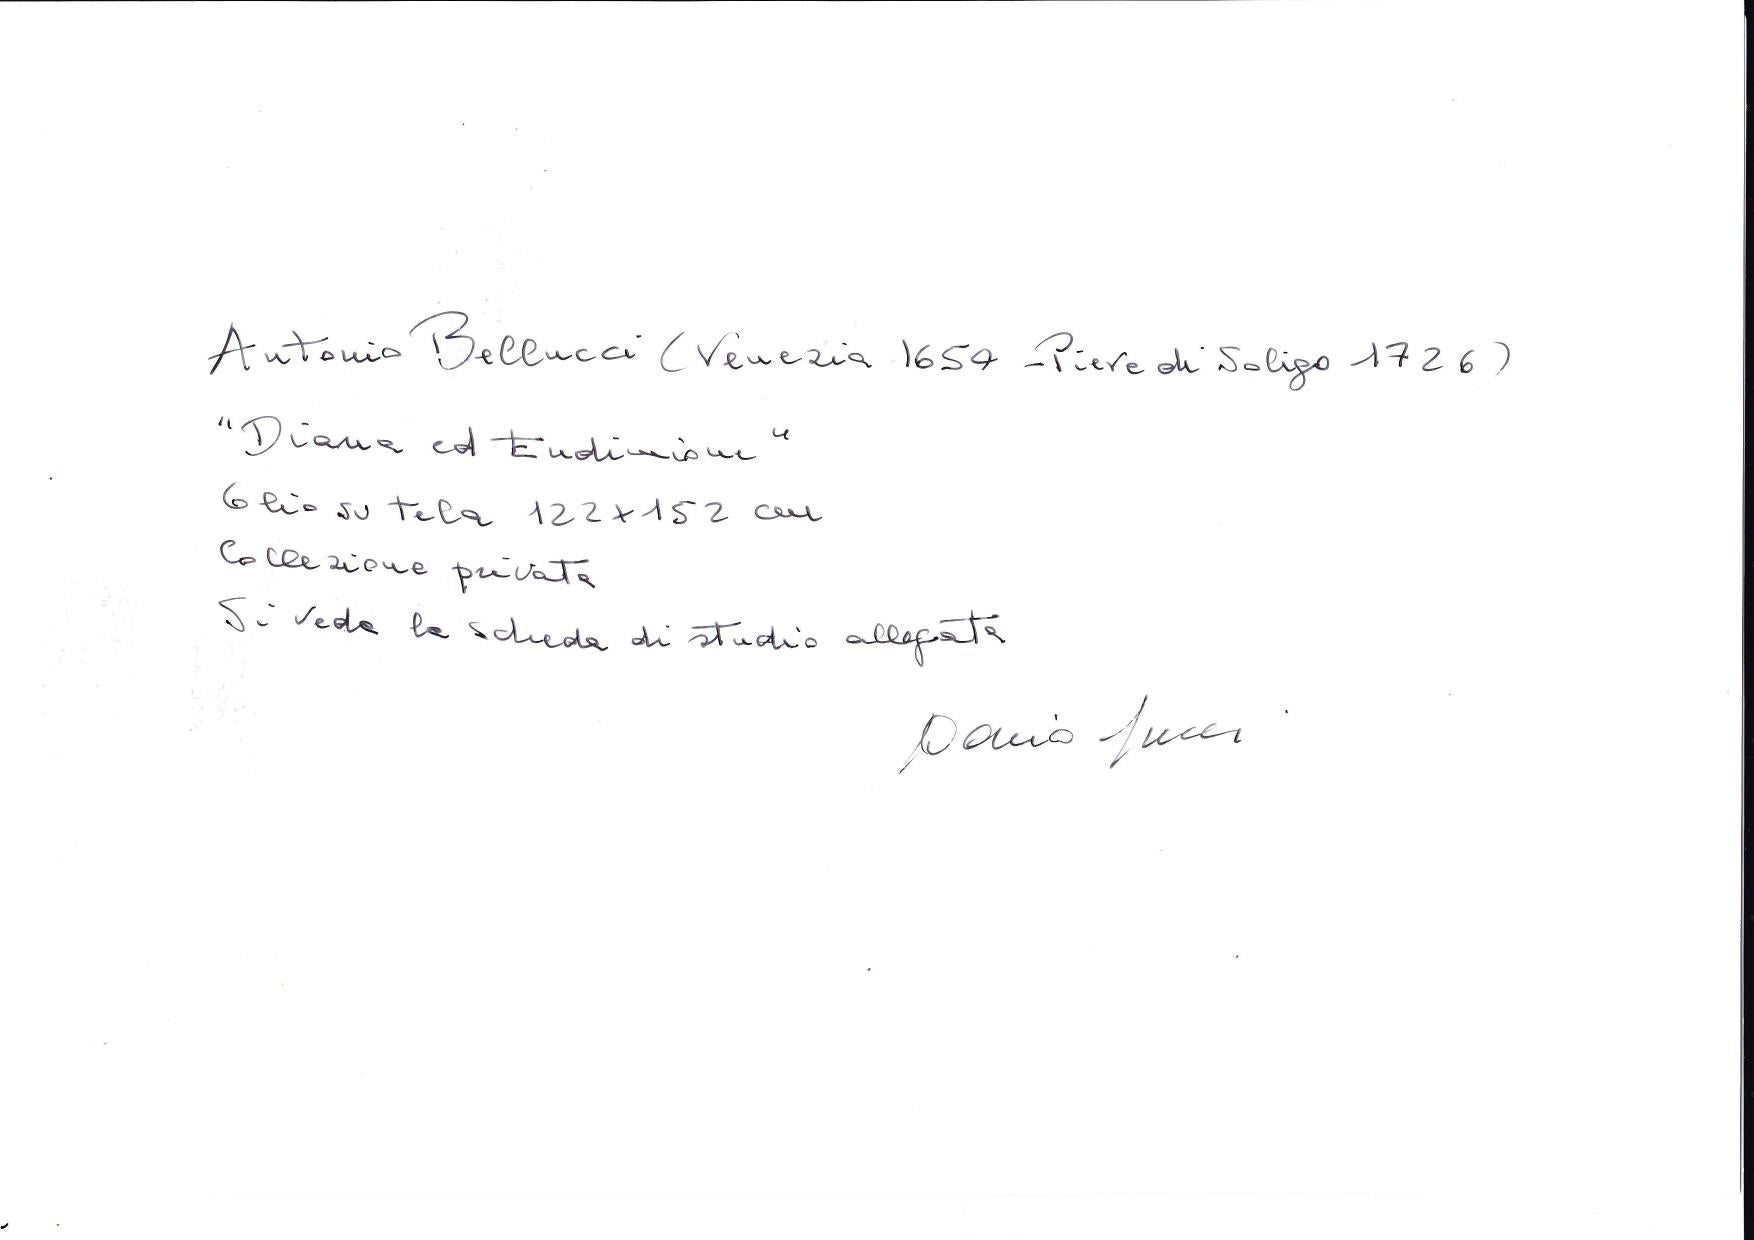 Antonio Bellucci (Venezia 1654 - Pieve di Soligo 1726)
"Diana ed Endimione"
Olio su tela 122x152 cm
Collezione privata
Si veda la scheda di studio allegata
Dario Succi